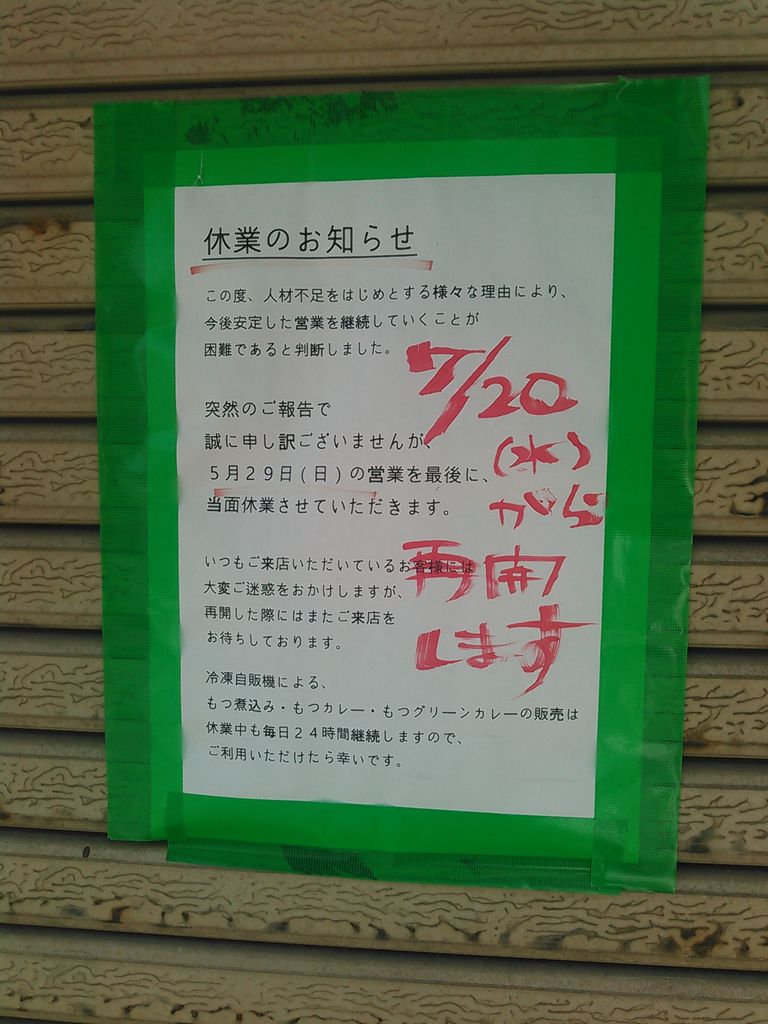 休業のお知らせ
この度、人材不足をはじめとする様々な理由により、
今後安定した営業を継続していくことが
困難であると判断しました。
突然のご報告で
誠に申し訳ございませんが、
5月29日(日)の営業を最後に、
当面休業させていただきます。
いつもご来店いただいているお客様には
大変ご迷惑をおかけしますが、
再開した際にはまたご来店を
お待ちしております。
冷凍自販機による、
もつ煮込み・もつカレー・もつグリーンカレーの販売は
休業中も毎日24時間継続しますので、
ご利用いただけたら幸いです。
7/20
(水)
から
再開
します